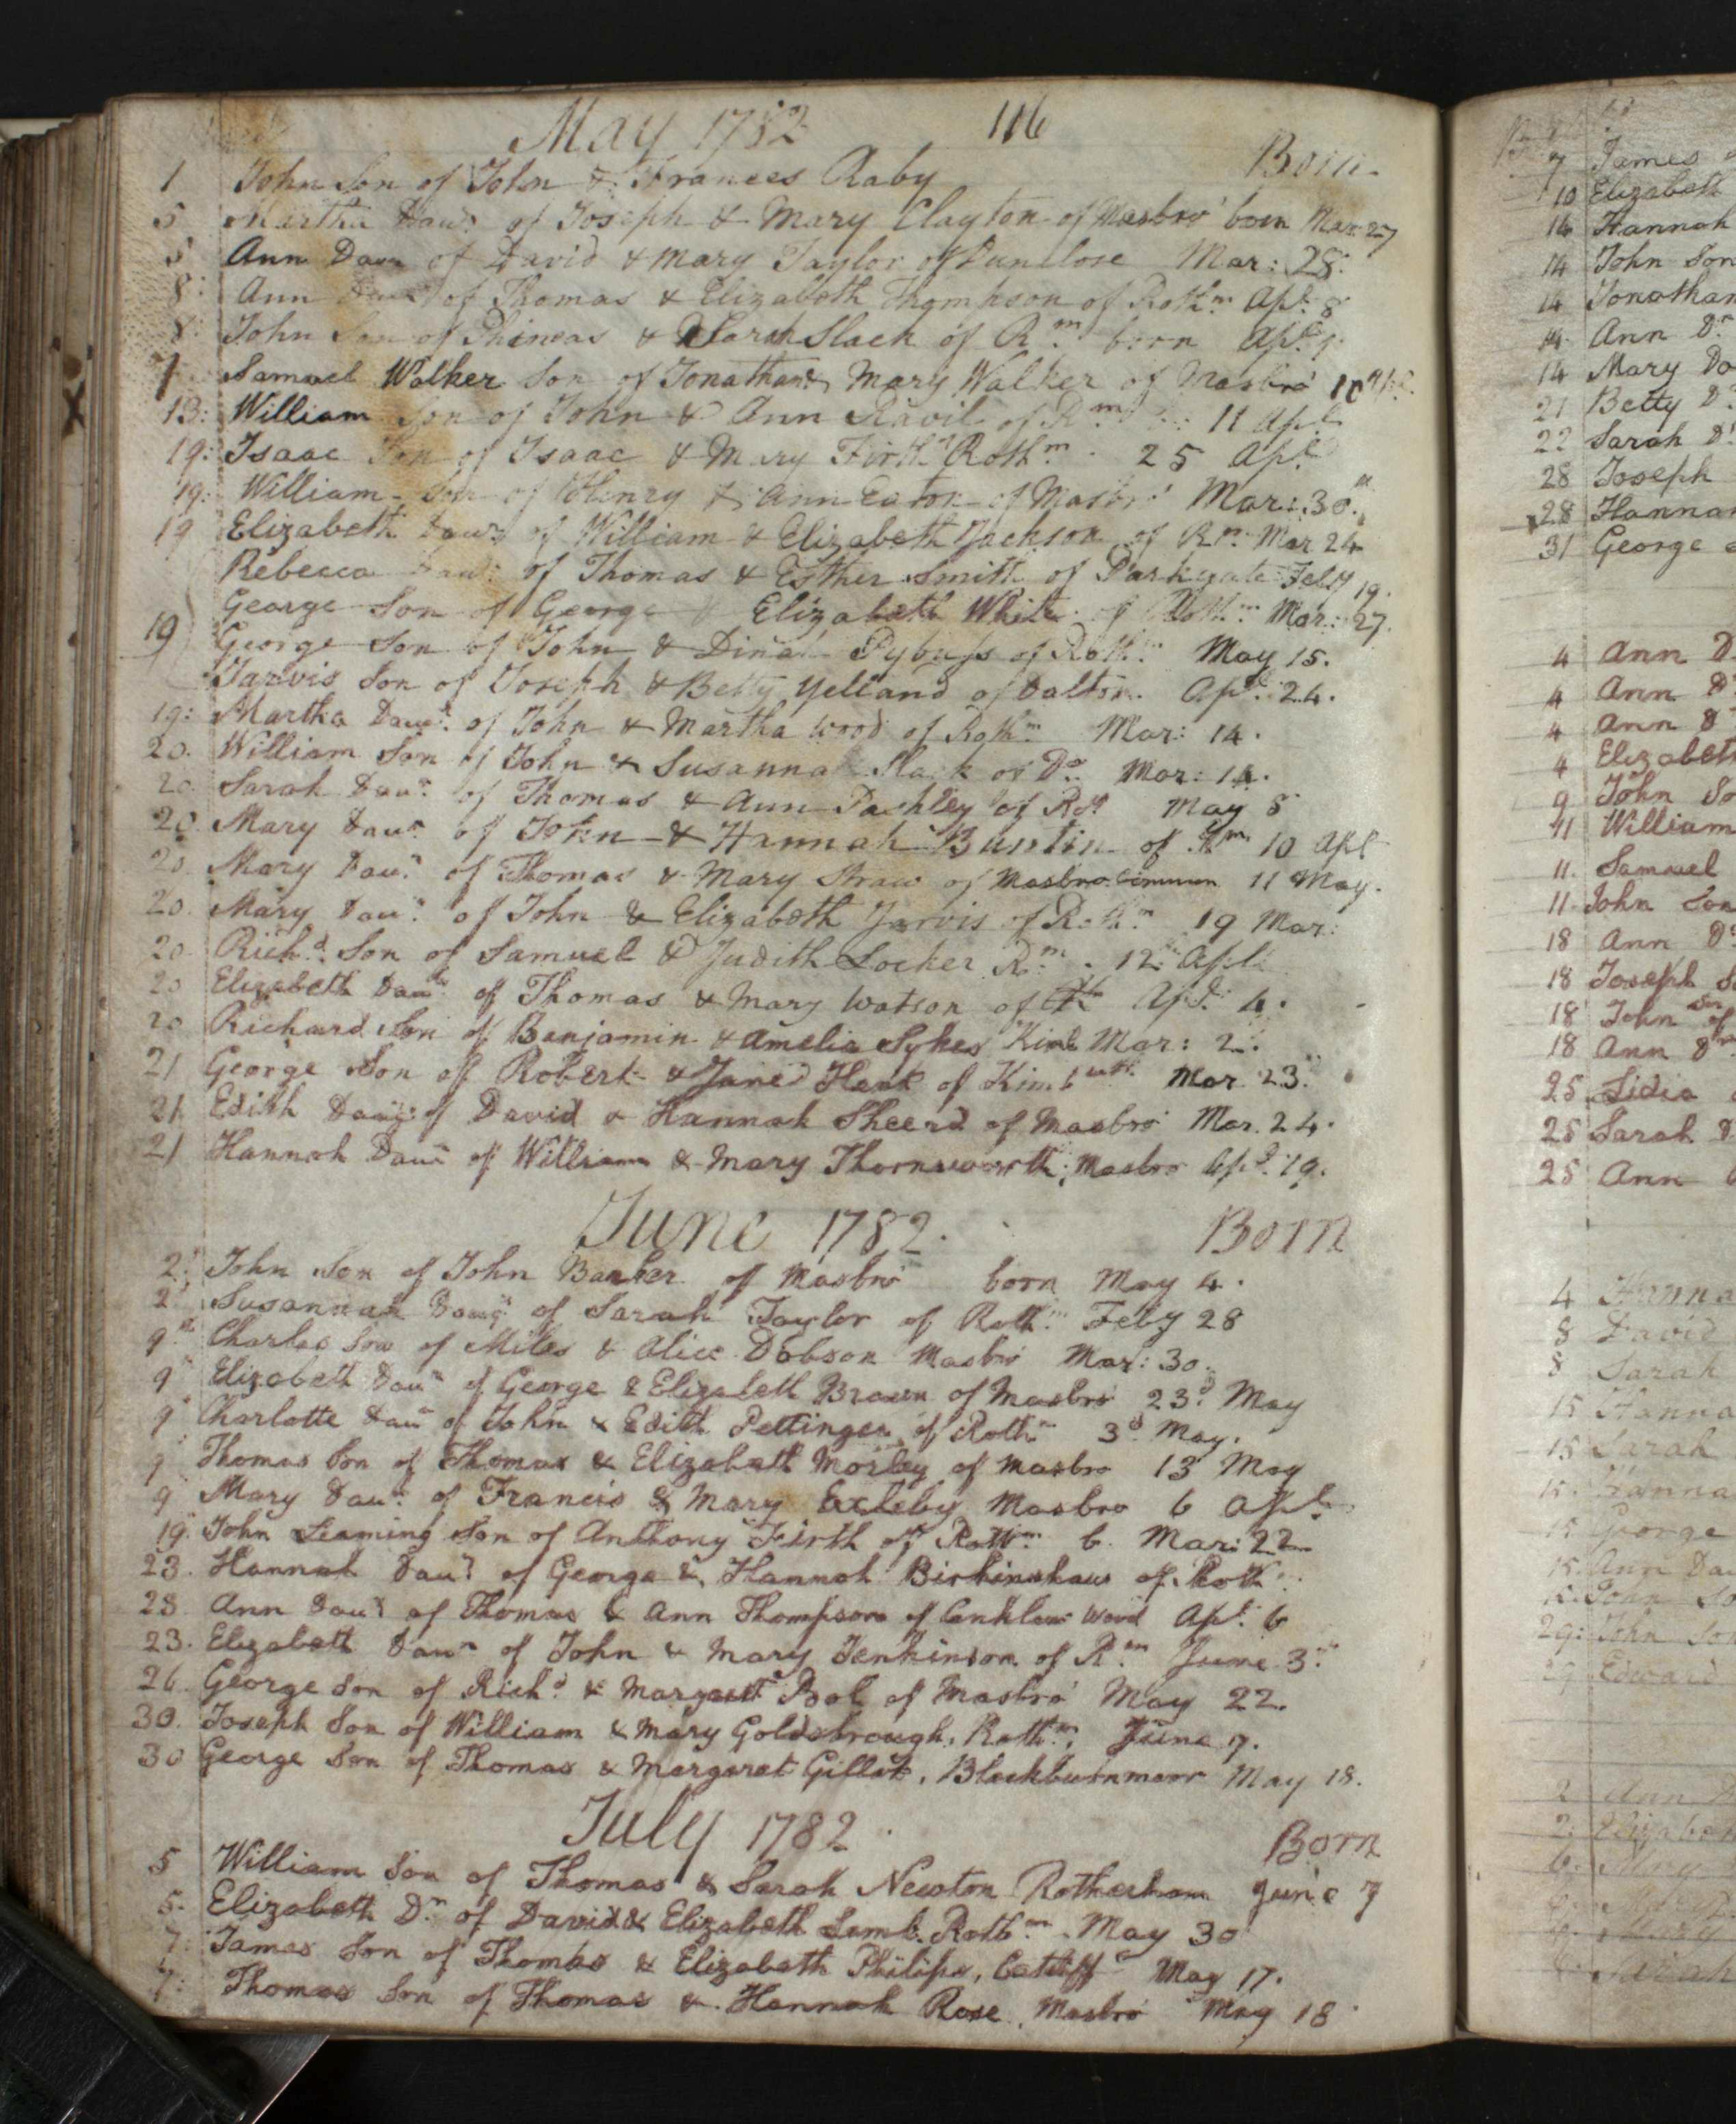 May 1782 116
Born
1 John Son of John & Frances Raby
5 Martha Daur of Joseph & Mary Clayton of Masbro' born Mar: 27
5 Ann Daur of David & Mary Taylor of Mar: 28
8 Ann Daur of Thomas & Elizabeth Thompson of Rothm Apl: 8
8 John Son of Phineas & Sarah Slack of Rm born Apl
Samuel Walker Son of Jonathan & Mary Walker of Masbro' 10 Apl
13: William Son of John & Ann Ravil of Rm 11 Apl
19: Isaac Son of Isaac & Mary Firth Rothm. 25 Apl
19: William Son of Henry & Ann Eaton of Masbro' Mar: 30th
19 Elizabeth Daur of William & Elizabeth Jackson of Rm: Mar 24
Rebecca Daur of Thomas & Esther Smith of Parkgate Feby 19.
George Son of George & Elizabeth White of Rothm Mar: 27.
19 George Son of John & Dinah Pybuss of Rothm May 15.
Jarvis Son of Joseph & Betty Yelland of Dalton. Apl: 24.
19: Martha Daur of John & Martha Wood of Rothm Mar: 14.
20. William Son of John & Susanna Slack of Do Mar: 14.
20 Sarah Daur of Thomas & Ann Pashley of Roth May 5
20. Mary Daur of John & Hannah Buntin of Rm 10 Apl
20. Mary Daur of Thomas & Mary Straw of Masbro Common 11 May.
20. Mary Daur of John & Elizabeth Jarvis of Rothm 19 Mar:
20 Richd Son of Samuel & Judith Locker Rm. 12th Apl
20 Elizabeth Daur of Thomas & Mary Watson of Apl: 4.
20 Richard Son of Benjamin & Amelia Sykes Kimb Mar: 2.
21 George Son of Robert & Jane Hawk of Kimbwth Mar. 23.
21 Edith Daur of David & Hannah Sheerd of Masbro' Mar. 24.
21 Hannah Daur of William & Mary Thornsworth, Masbro Apl. 19.
June 1782. Born
2: John Son of John Barker of Masbro' born May 4.
2 Susannah Daur of Sarah Taylor of Rothm Feby 28
9th Charles Son of Miles & Alice Dobson Masbro' Mar: 30.
9 Elizabeth Daur of George & Elizabeth Brown of Masbro' 23d May
9 Charlotte Daur of John & Edith Pettinger of Rothm 3d May.
9 Thomas Son of Thomas & Elizabeth Morley of Masbro 13 May
9 Mary Daur of Francis & Mary Exleby Masbro 6 Apl
19. John Leaming Son of Anthony Firth of Rothm. b. Mar: 22
23. Hannah Daur of George & Hannah Birkinshaw of Roth
23. Ann Daur of Thomas & Ann Thompson of Canklow Wood Apl. 6
23. Elizabeth Daur of John & Mary Jenkinson of Rm June 3d
26. George Son of Richd & Margarett Bol of Masbro' May 22.
30. Joseph Son of William & Mary Goldsbrough, Rothm, June 7.
30 George Son of Thomas & Margaret Gillot, Blackburnmoor May 18.
July 1782. Born
5 William Son of Thomas & Sarah Newton Rotherham June 7
5. Elizabeth Dr of David & Elizabeth Lamb. Rothm. May 30
7: James Son of Thomas & Elizabeth Philips, Catcliff May 17.
7: Thomas Son of Thomas & Hannah Rose, Masbro' May 18
7 James
10 Elizabeth
14 Hannah
14 John Son
14 Jonathan
14. Ann Dr
14 Mary Da
21 Betty D
22 Sarah D
28 Joseph
28 Hannah
31 George
4 Ann D
4 Ann D
4 Ann D
4 Elizabeth
9 John So
11 William
11. Samuel
11. John Son
18 Ann D
18 Joseph S
18 John Son of
18 Ann D
25 Lidia
25 Sarah D
25 Ann
4 Hanna
8 David
8 Sarah
15 Hanna
15 Sarah
15. Hanna
15 George
15. Ann Da
15. John So
29: John Son
29 Edward
2 Ann
2: Elizabe
6. Mary
Mary
Mary
Sarah